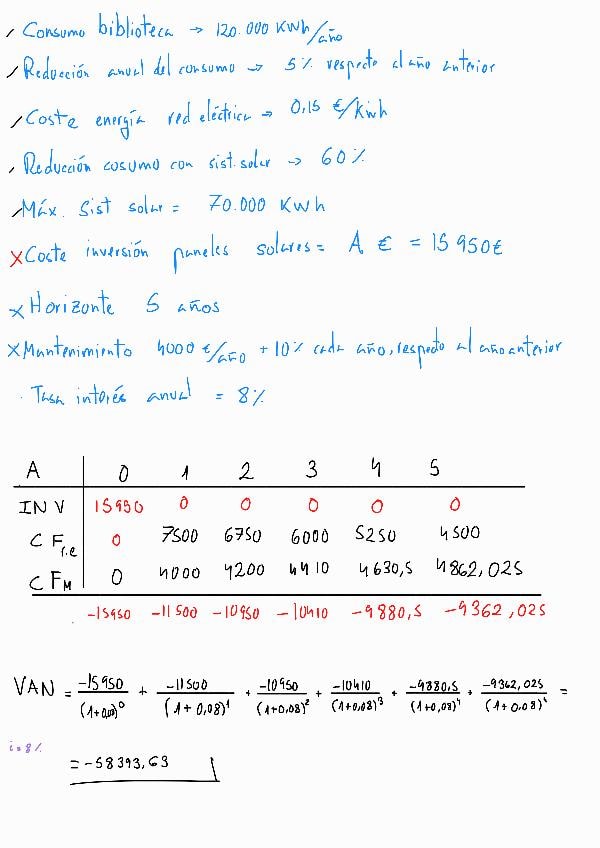 Consumo biblioteca → 120.000 KWh/año
Reducción anual del consumo → 5% respecto al año anterior
Coste energía red eléctrica → 0,15 €/Kwh
Reducción cosumo con sist. solar → 60%
Máx. Sist solar = 70.000 KWh
x Coste inversión paneles solares = A € = 15950€
x Horizonte 5 años
x Mantenimiento 4000 €/año + 10% cada año, respecto al año anterior
· Tasa interés anual = 8%
A 0 1 2 3 4 5
INV 15950 0 0 0 0 0
CF r.e 0 7500 6750 6000 5250 4500
CF M 0 4000 4200 4410 4630,5 4862,025
-15950 -11500 -10950 -10410 -9880,5 -9362,025
VAN = -15950/(1+0,08)^0 + -11500/(1+0,08)^1 + -10950/(1+0,08)^2 + -10410/(1+0,08)^3 + -9880,5/(1+0,08)^4 + -9362,025/(1+0,08)^5 =
i=8%
= -58393,63